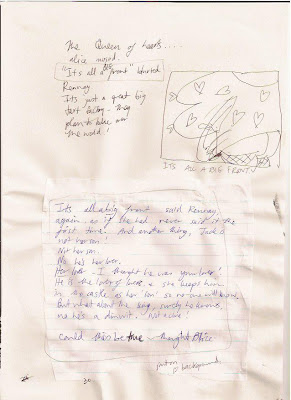 The Queen of hearts...
alice mused.
"It's all a big front" blurted
Kenney
It's just a great big
tart factory - They
plan to take over
the world!
IT'S ALL A BIG FRONT
It's all a big front said Kenney
again as if he had never said it the
first time. And another thing, Jack is
not her son!
Not her son.
No he's her lover.
Her lover - I thought he was your lover!
He is the lover of hers & she keeps him
in the castle as her son so no one will know.
But what about the king, surely he knows,
no he's a dimwit. Not a clue!
Could this be true - thought Alice
put on
background